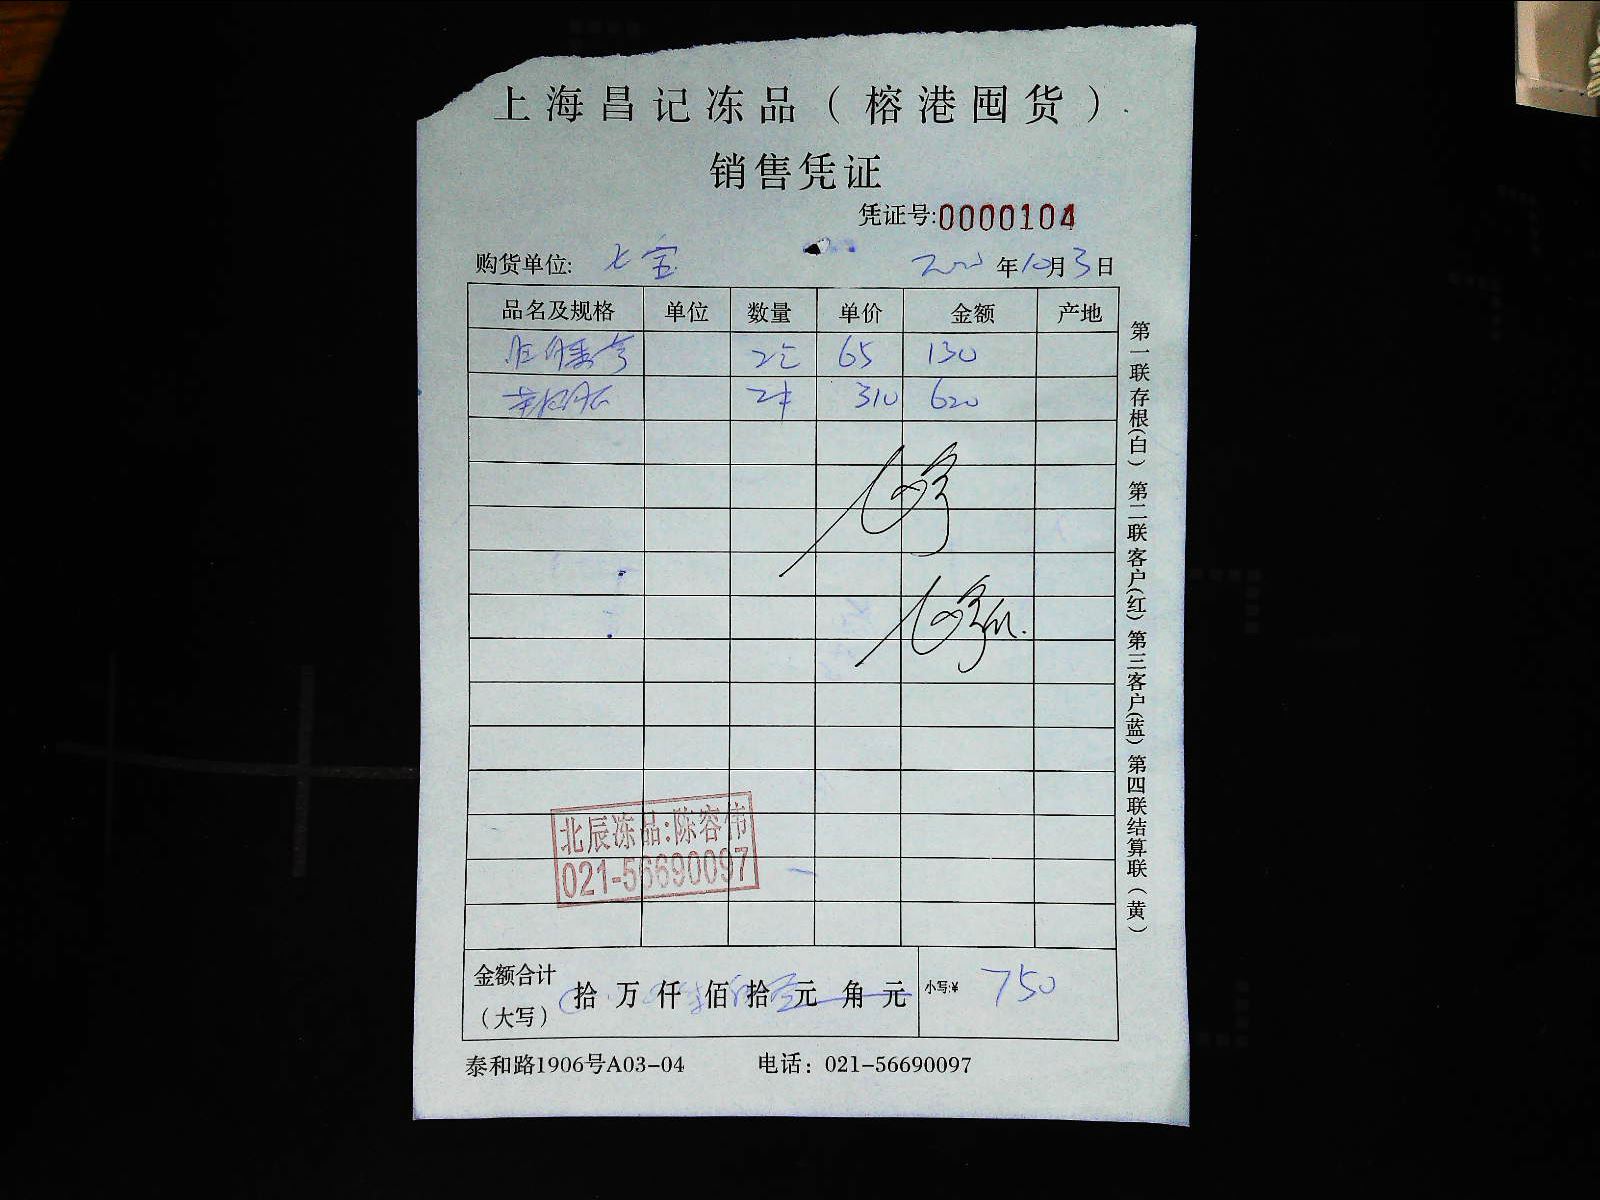 上海昌记冻品（榕港囤货）
销售凭证
凭证号:0000104
购货单位: 七宝 年10月3日
品名及规格 单位 数量 单价 金额 产地
2 65 130
2 310 620
北辰冻品:陈容伟
021-56690097
金额合计（大写） 拾 万 仟 佰 拾 元 角 元 小写:¥ 750
泰和路1906号A03-04 电话：021-56690097
第一联存根(白) 第二联客户(红) 第三客户(蓝) 第四联结算联（黄）